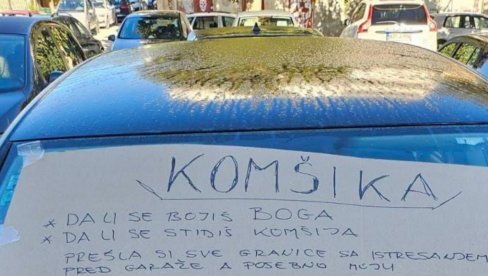 KOMŠIKA
* DA LI SE BOJIŠ BOGA
* DA LI SE STIDIŠ KOMŠIJA
PREŠLA SI SVE GRANICE SA ISTRESANJEM
PRED GARAŽE A POSEBNO MOJU